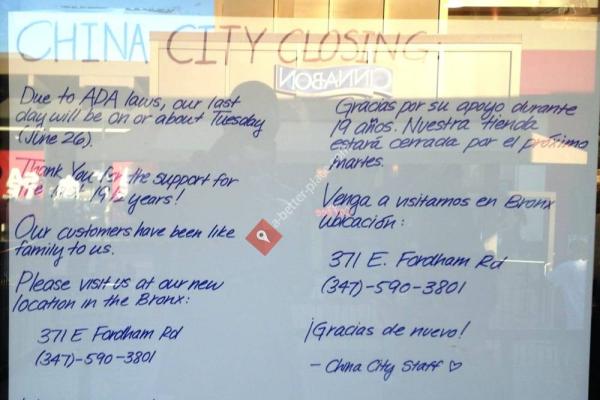 CHINA CITY CLOSING
Due to ADA laws, our last
day will be on or about Tuesday
(June 26).
Thank You for the support for
19 1/2 years!
Our customers have been like
family to us.
Please visit us at our new
location in the Bronx:
371 E Fordham Rd
(347)-590-3801
Gracias por su apoyo durante
19 años. Nuestra tienda
estará cerrada por el próximo
martes.
Venga a visitarnos en Bronx
ubicación:
371 E. Fordham Rd
(347)-590-3801
¡Gracias de nuevo!
- China City Staff ♡
CINNABON
a-better-place